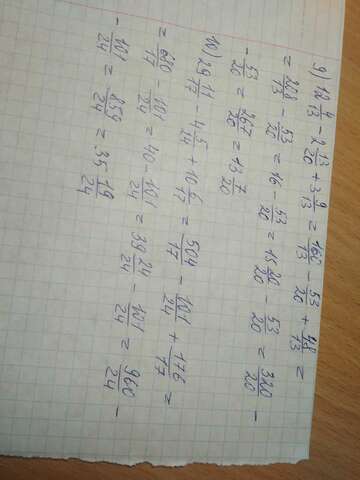 9) 12 4/13 - 2 13/20 + 3 9/13 = 160/13 - 53/20 + 48/13 =
= 208/13 - 53/20 = 16 - 53/20 = 15 20/20 - 53/20 = 320/20 -
- 53/20 = 267/20 = 13 7/20
10) 29 11/17 - 4 5/24 + 10 6/17 = 504/17 - 101/24 + 176/17 =
= 680/17 - 101/24 = 40 - 101/24 = 39 24/24 - 101/24 = 960/24 -
- 101/24 = 859/24 = 35 19/24